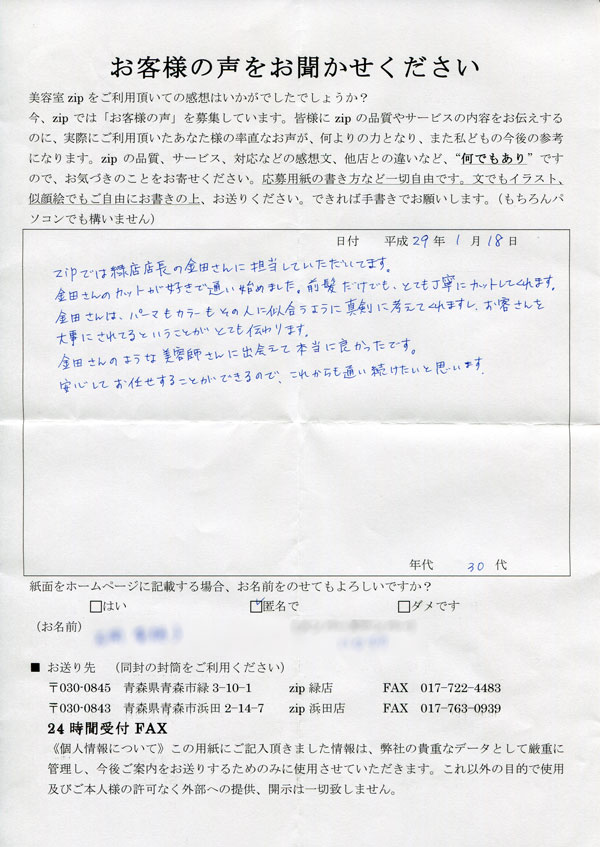 お客様の声をお聞かせください
美容室 zip をご利用頂いての感想はいかがでしたでしょうか？
今、zip では「お客様の声」を募集しています。皆様に zip の品質やサービスの内容をお伝えする
のに、実際にご利用頂いたあなた様の率直なお声が、何よりの力となり、また私どもの今後の参考
になります。zip の品質、サービス、対応などの感想文、他店との違いなど、“何でもあり”です
ので、お気づきのことをお寄せください。応募用紙の書き方など一切自由です。文でもイラスト、
似顔絵でもご自由にお書きの上、お送りください。できれば手書きでお願いします。（もちろんパ
ソコンでも構いません）
日付 平成 29 年 1 月 18 日
zipでは緑店店長の金田さんに担当していただいてます。
金田さんのカットが好きで通い始めました。前髪だけでも、とても丁寧にカットしてくれます。
金田さんは、パーマもカラーもその人に似合うように真剣に考えてくれますし、お客さんを
大事にされてるということがとても伝わります。
金田さんのような美容師さんに出会えて本当に良かったです。
安心してお任せすることができるので、これからも通い続けたいと思います。
年代 30 代
紙面をホームページに記載する場合、お名前をのせてもよろしいですか？
□はい ☑匿名で □ダメです
（お名前）
■ お送り先 （同封の封筒をご利用ください）
〒030-0845 青森県青森市緑 3-10-1 zip 緑店 FAX 017-722-4483
〒030-0843 青森県青森市浜田 2-14-7 zip 浜田店 FAX 017-763-0939
24 時間受付 FAX
《個人情報について》この用紙にご記入頂きました情報は、弊社の貴重なデータとして厳重に
管理し、今後ご案内をお送りするためのみに使用させていただきます。これ以外の目的で使用
及びご本人様の許可なく外部への提供、開示は一切致しません。